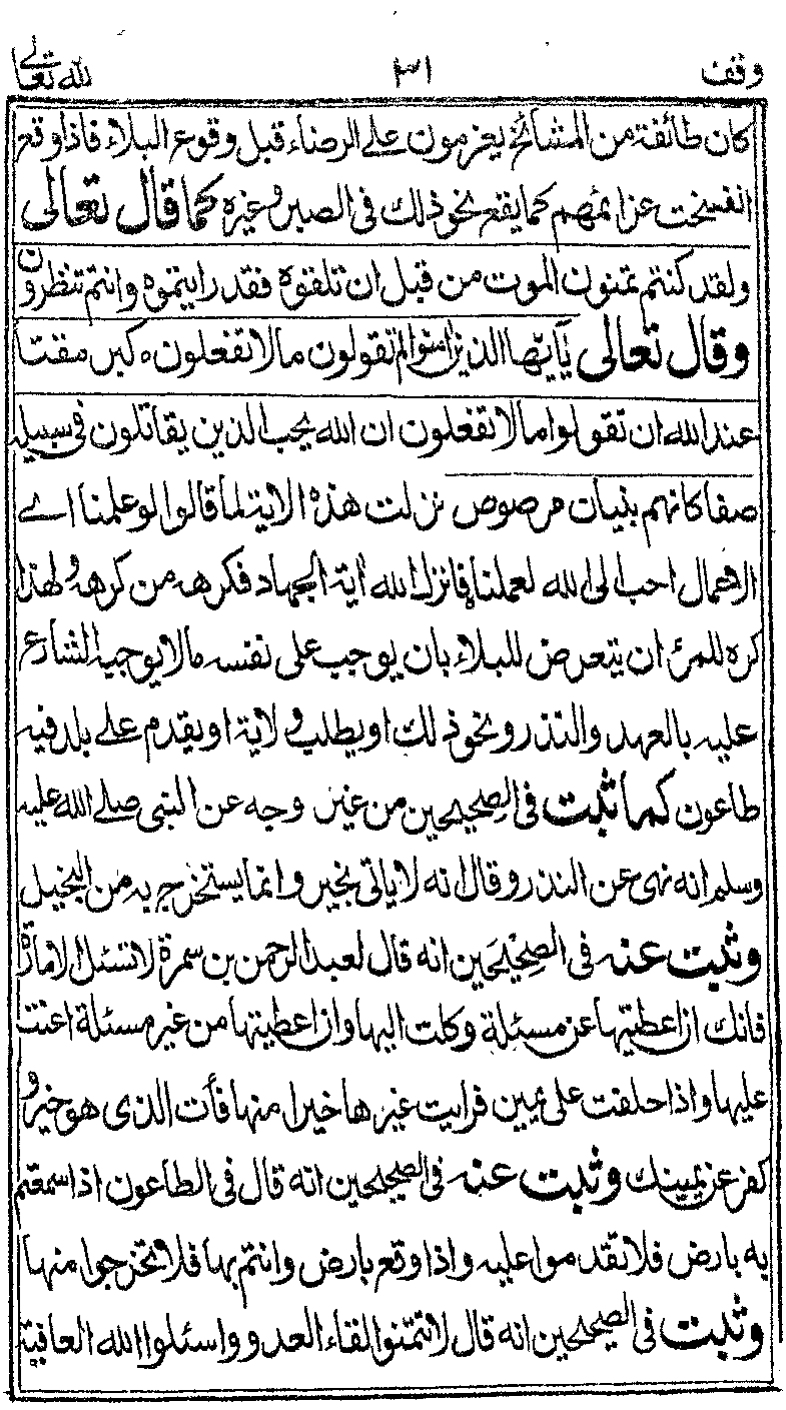 وقف ٣١ لله تعالى
كان طائفة من المشائخ يعزمون على الرضاء قبل وقوع البلاء فاذا وقع
انفسخت عزائمهم كما يقع نحو ذلك فى الصبر وغيره كما قال تعالى
ولقد كنتم تمنون الموت من قبل ان تلقوه فقد رايتموه وانتم تنظرون
وقال تعالى يٓايها الذين امنوا لم تقولون مالا تفعلون ه كبر مقتا
عند الله ان تقولوا مالا تفعلون ان الله يحب الذين يقاتلون فى سبيله
صفا كانهم بنيان مرصوص نزلت هذه الاية لما قالوا لو علمنا اے
الاعمال احب الى الله لعملنا فانزل الله اية الجهاد فكرهه من كرهه ولهذا
كره للمرء ان يتعرض للبلاء بان يوجب على نفسه مالا يوجبه الشارع
عليه بالعهد والنذر ونحو ذلك او يطلب ولاية او يقدم على بلد فيه
طاعون كما ثبت فى الصحيحين من غير وجه عن النبى صلے الله عليه
وسلم انه نهى عن النذر وقال انه لا ياتى بخير وانما يستخرج به من البخيل
وثبت عنه فى الصحيحين انه قال لعبد الرحمن بن سمرة لا تسئل الامارة
فانك ان اعطيتها عن مسئلة وكلت اليها وان اعطيتها من غير مسئلة اعنت
عليها واذا حلفت على يمين فرايت غيرها خيرا منها فأت الذى هو خير و
كفر عن يمينك وثبت عنه فى الصحيحين انه قال فى الطاعون اذا سمعتم
به بارض فلا تقدموا عليه واذا وقع بارض وانتم بها فلا تخرجوا منها
وثبت فى الصحيحين انه قال لا تتمنوا لقاء العدو واسئلوا الله العافية